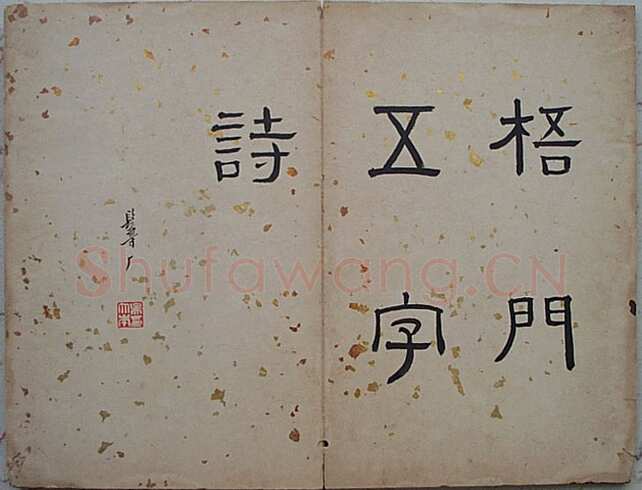 梧門
五字
詩
Shufawang.CN